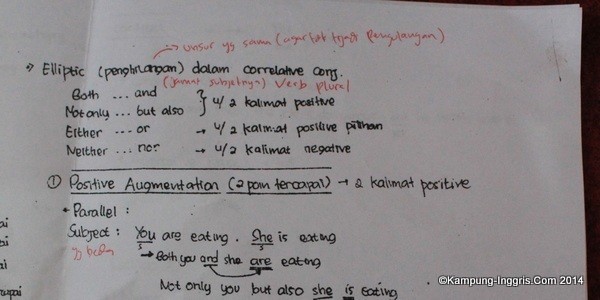 → unsur yg sama (agar tdk terjadi pengulangan)
→ Elliptic (penghilangan) dalam correlative conj.
(jamak subjeknya) Verb plural
Both ... and
Not only ... but also } u/ 2 kalimat positive
Either ... or → u/ 2 kalimat positive pilihan
Neither ... nor → u/ 2 kalimat negative
① Positive Augmentation (2 poin tercapai) → 2 kalimat positive
* Parallel :
Subject : You are eating. She is eating
S S
yg beda
→ Both you and she are eating
Not only you but also she is eating
ai
ai
©Kampung-Inggris.Com 2014